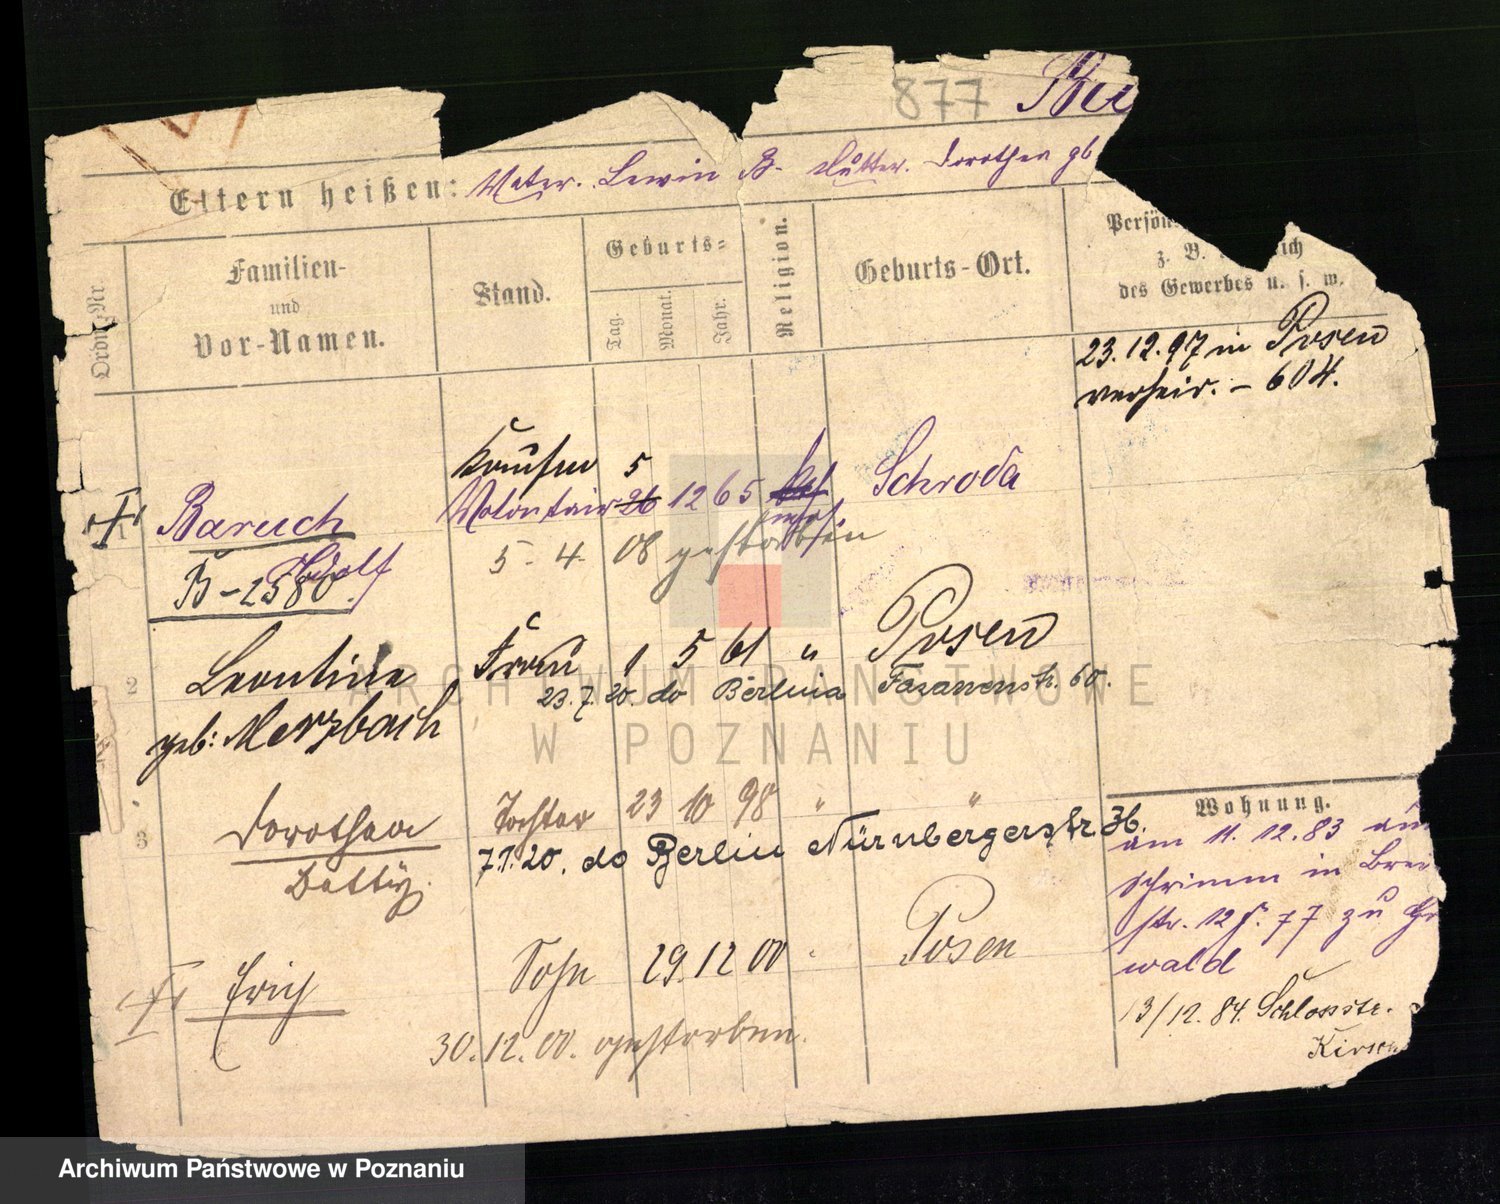 877
Eltern heißen: Vater. Lewin B. Mutter. Dorothea gb
Ordn.-Nr.
Familien-
und
Vor-Namen.
Stand.
Geburts-
Tag.
Monat.
Jahr.
Religion.
Geburts-Ort.
Persön
z. B.
des Gewerbes u. s. w.
23.12.97 in Posen
verheir. – 604.
Kaufm 5
Baruch Volontair 26 12 65 Schroda
Adolf
B – 2580
5. 4. 08 gestorben
2 Leontine Frau 1 5 61 " Posen
23.7.20. do Berlina Fasanenstr. 60.
geb: Merzbach
3 Dorothea Tochter 23 10 98 " "
7.1.20. do Berlin Nürnbergerstr. 36
Betty
Erich Sohn 29. 12 00 Posen
30.12.00. gestorben.
Wohnung.
am 11. 12. 83 aus
Schrimm in Brei
str. 12 77 zu Gr
wald
13/12. 84. Schlossstr.
Kirsch
ARCHIWUM PAŃSTWOWE
W POZNANIU
Archiwum Państwowe w Poznaniu